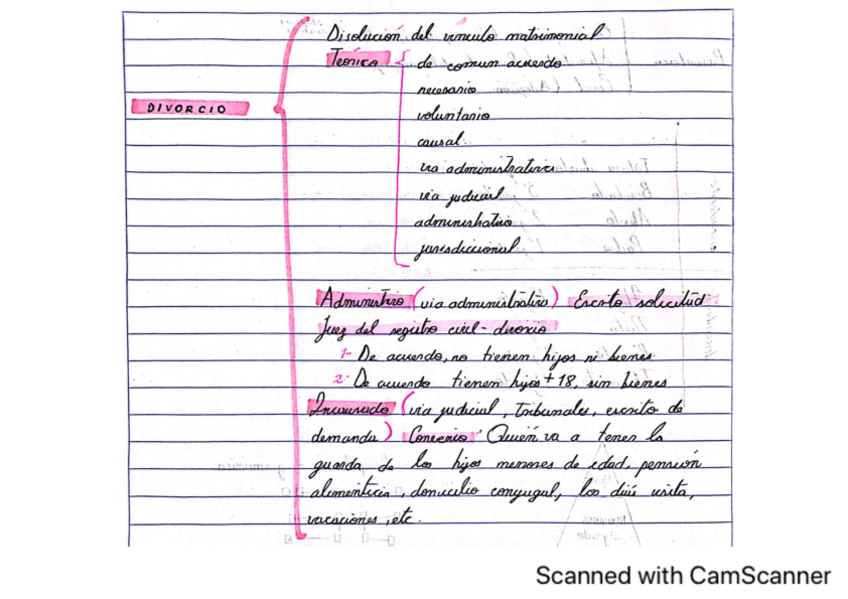 DIVORCIO
Disolución del vínculo matrimonial
Teórico
de comun acuerdo
necesario
voluntario
causal.
via administrativa
via judicial
administrativo
jurisdiccional
Administrativo (via administrativa) Escrito solicitud
Juez del registro civil - divorcio
1- De acuerdo, no tienen hijos ni bienes
2- De acuerdo tienen hijos + 18, sin bienes
(via judicial, tribunales, escrito de
demanda) Convenio: Quién va a tener la
guarda de los hijos menores de edad, pensión
alimenticia, domicilio conyugal, los días visita,
vacaciones, etc.
Scanned with CamScanner